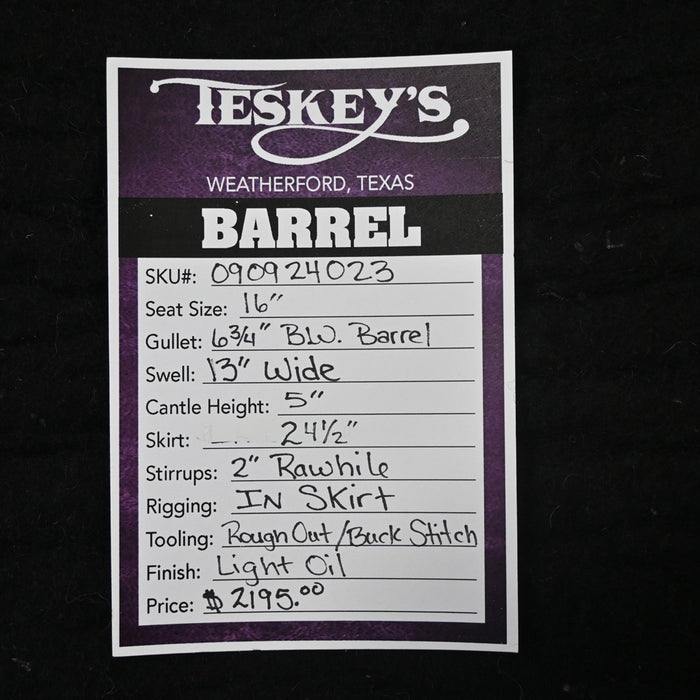 TESKEY'S
WEATHERFORD, TEXAS
BARREL
SKU#: 090924023
Seat Size: 16"
Gullet: 6 3/4" BW. Barrel
Swell: 13" Wide
Cantle Height: 5"
Skirt: 24 1/2"
Stirrups: 2" Rawhile
Rigging: IN SKirt
Tooling: Rough Out/Buck Stitch
Finish: Light Oil
Price: $2195.00